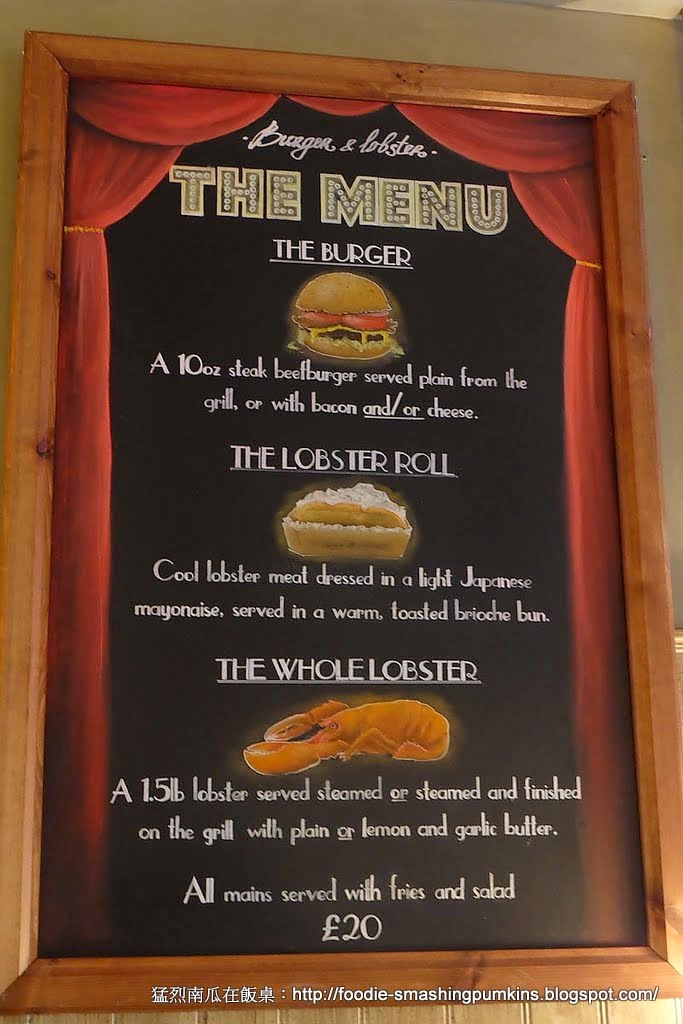 · Burger & lobster ·
THE MENU
THE BURGER
A 10oz steak beefburger served plain from the
grill, or with bacon and/or cheese.
THE LOBSTER ROLL
Cool lobster meat dressed in a light Japanese
mayonaise, served in a warm, toasted brioche bun.
THE WHOLE LOBSTER
A 1.5lb lobster served steamed or steamed and finished
on the grill with plain or lemon and garlic butter.
All mains served with fries and salad
£20
猛烈南瓜在飯桌：http://foodie-smashingpumkins.blogspot.com/